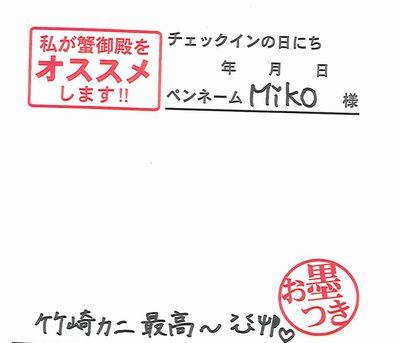 私が蟹御殿を
オススメ
します!!
チェックインの日にち
年 月 日
ペンネーム Miko 様
お墨つき
竹崎カニ 最高〜